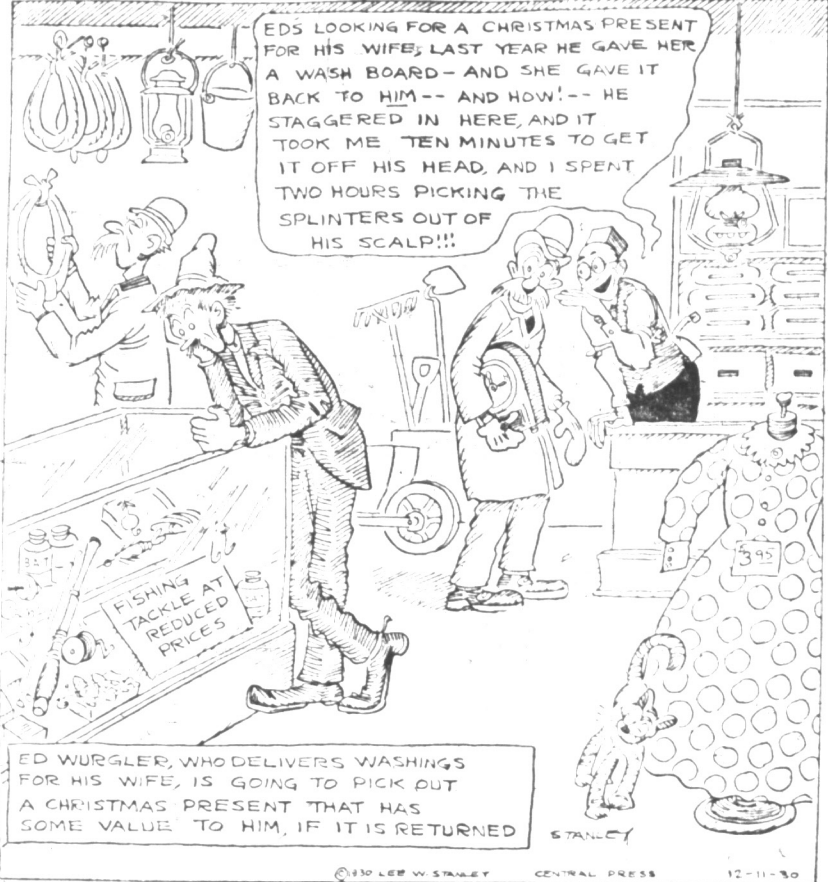 EDS LOOKING FOR A CHRISTMAS PRESENT
FOR HIS WIFE; LAST YEAR HE GAVE HER
A WASH BOARD - AND SHE GAVE IT
BACK TO HIM -- AND HOW! -- HE
STAGGERED IN HERE, AND IT
TOOK ME TEN MINUTES TO GET
IT OFF HIS HEAD, AND I SPENT
TWO HOURS PICKING THE
SPLINTERS OUT OF
HIS SCALP!!!
BAIT
FISHING
TACKLE AT
REDUCED
PRICES
$3.95
ED WURGLER, WHO DELIVERS WASHINGS
FOR HIS WIFE, IS GOING TO PICK OUT
A CHRISTMAS PRESENT THAT HAS
SOME VALUE TO HIM, IF IT IS RETURNED
STANLEY
©1930 LEE W. STANLEY CENTRAL PRESS 12-11-30